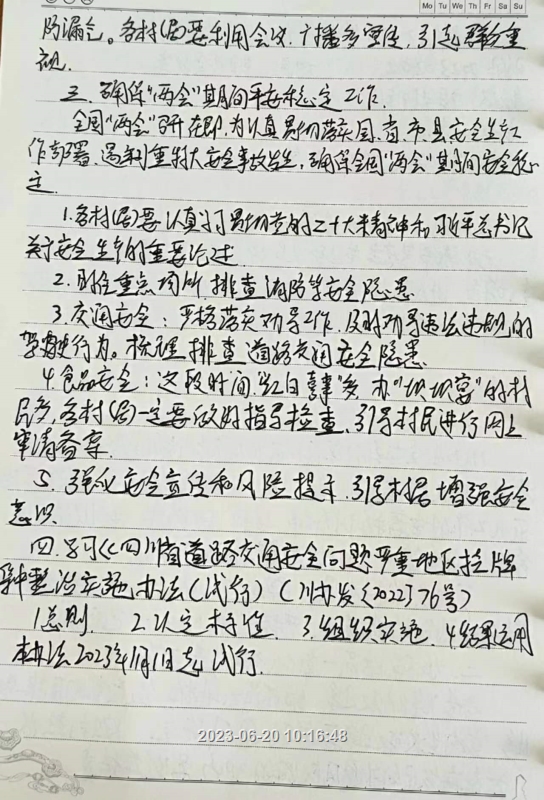 Mo Tu We Th Fr Sa Su
防漏气。各村(居)要利用会议、广播多宣传,引起群众重
视.
三、确保"两会"期间平安稳定工作.
全国"两会"召开在即,为认真贯彻落实国、省、市、县安全生产工
作部署,遏制重特大安全事故发生,确保全国"两会"期间安全稳
定.
1.各村(居)要认真学习贯彻党的二十大精神和习近平总书记
关于安全生产的重要论述.
2.重点场所,排查消防等安全隐患
3.交通安全:严格落实劝导工作,及时劝导违法违规的
驾驶行为。梳理排查道路交通安全隐患
4.食品安全:这段时间,红白喜事多,办"坝坝宴"的村
民多,各村(居)一定要做好指导检查,引导村民进行网上
申请备案.
5.强化安全宣传和风险提示,引导村民增强安全
意识.
四.学习《四川省道路交通安全问题严重地区挂牌
整治实施办法(试行)(川办发〔2022〕76号)
1.总则. 2.认定标准. 3.组织实施. 4.结果运用
本办法2023年1月1日起试行.
2023-06-20 10:16:48